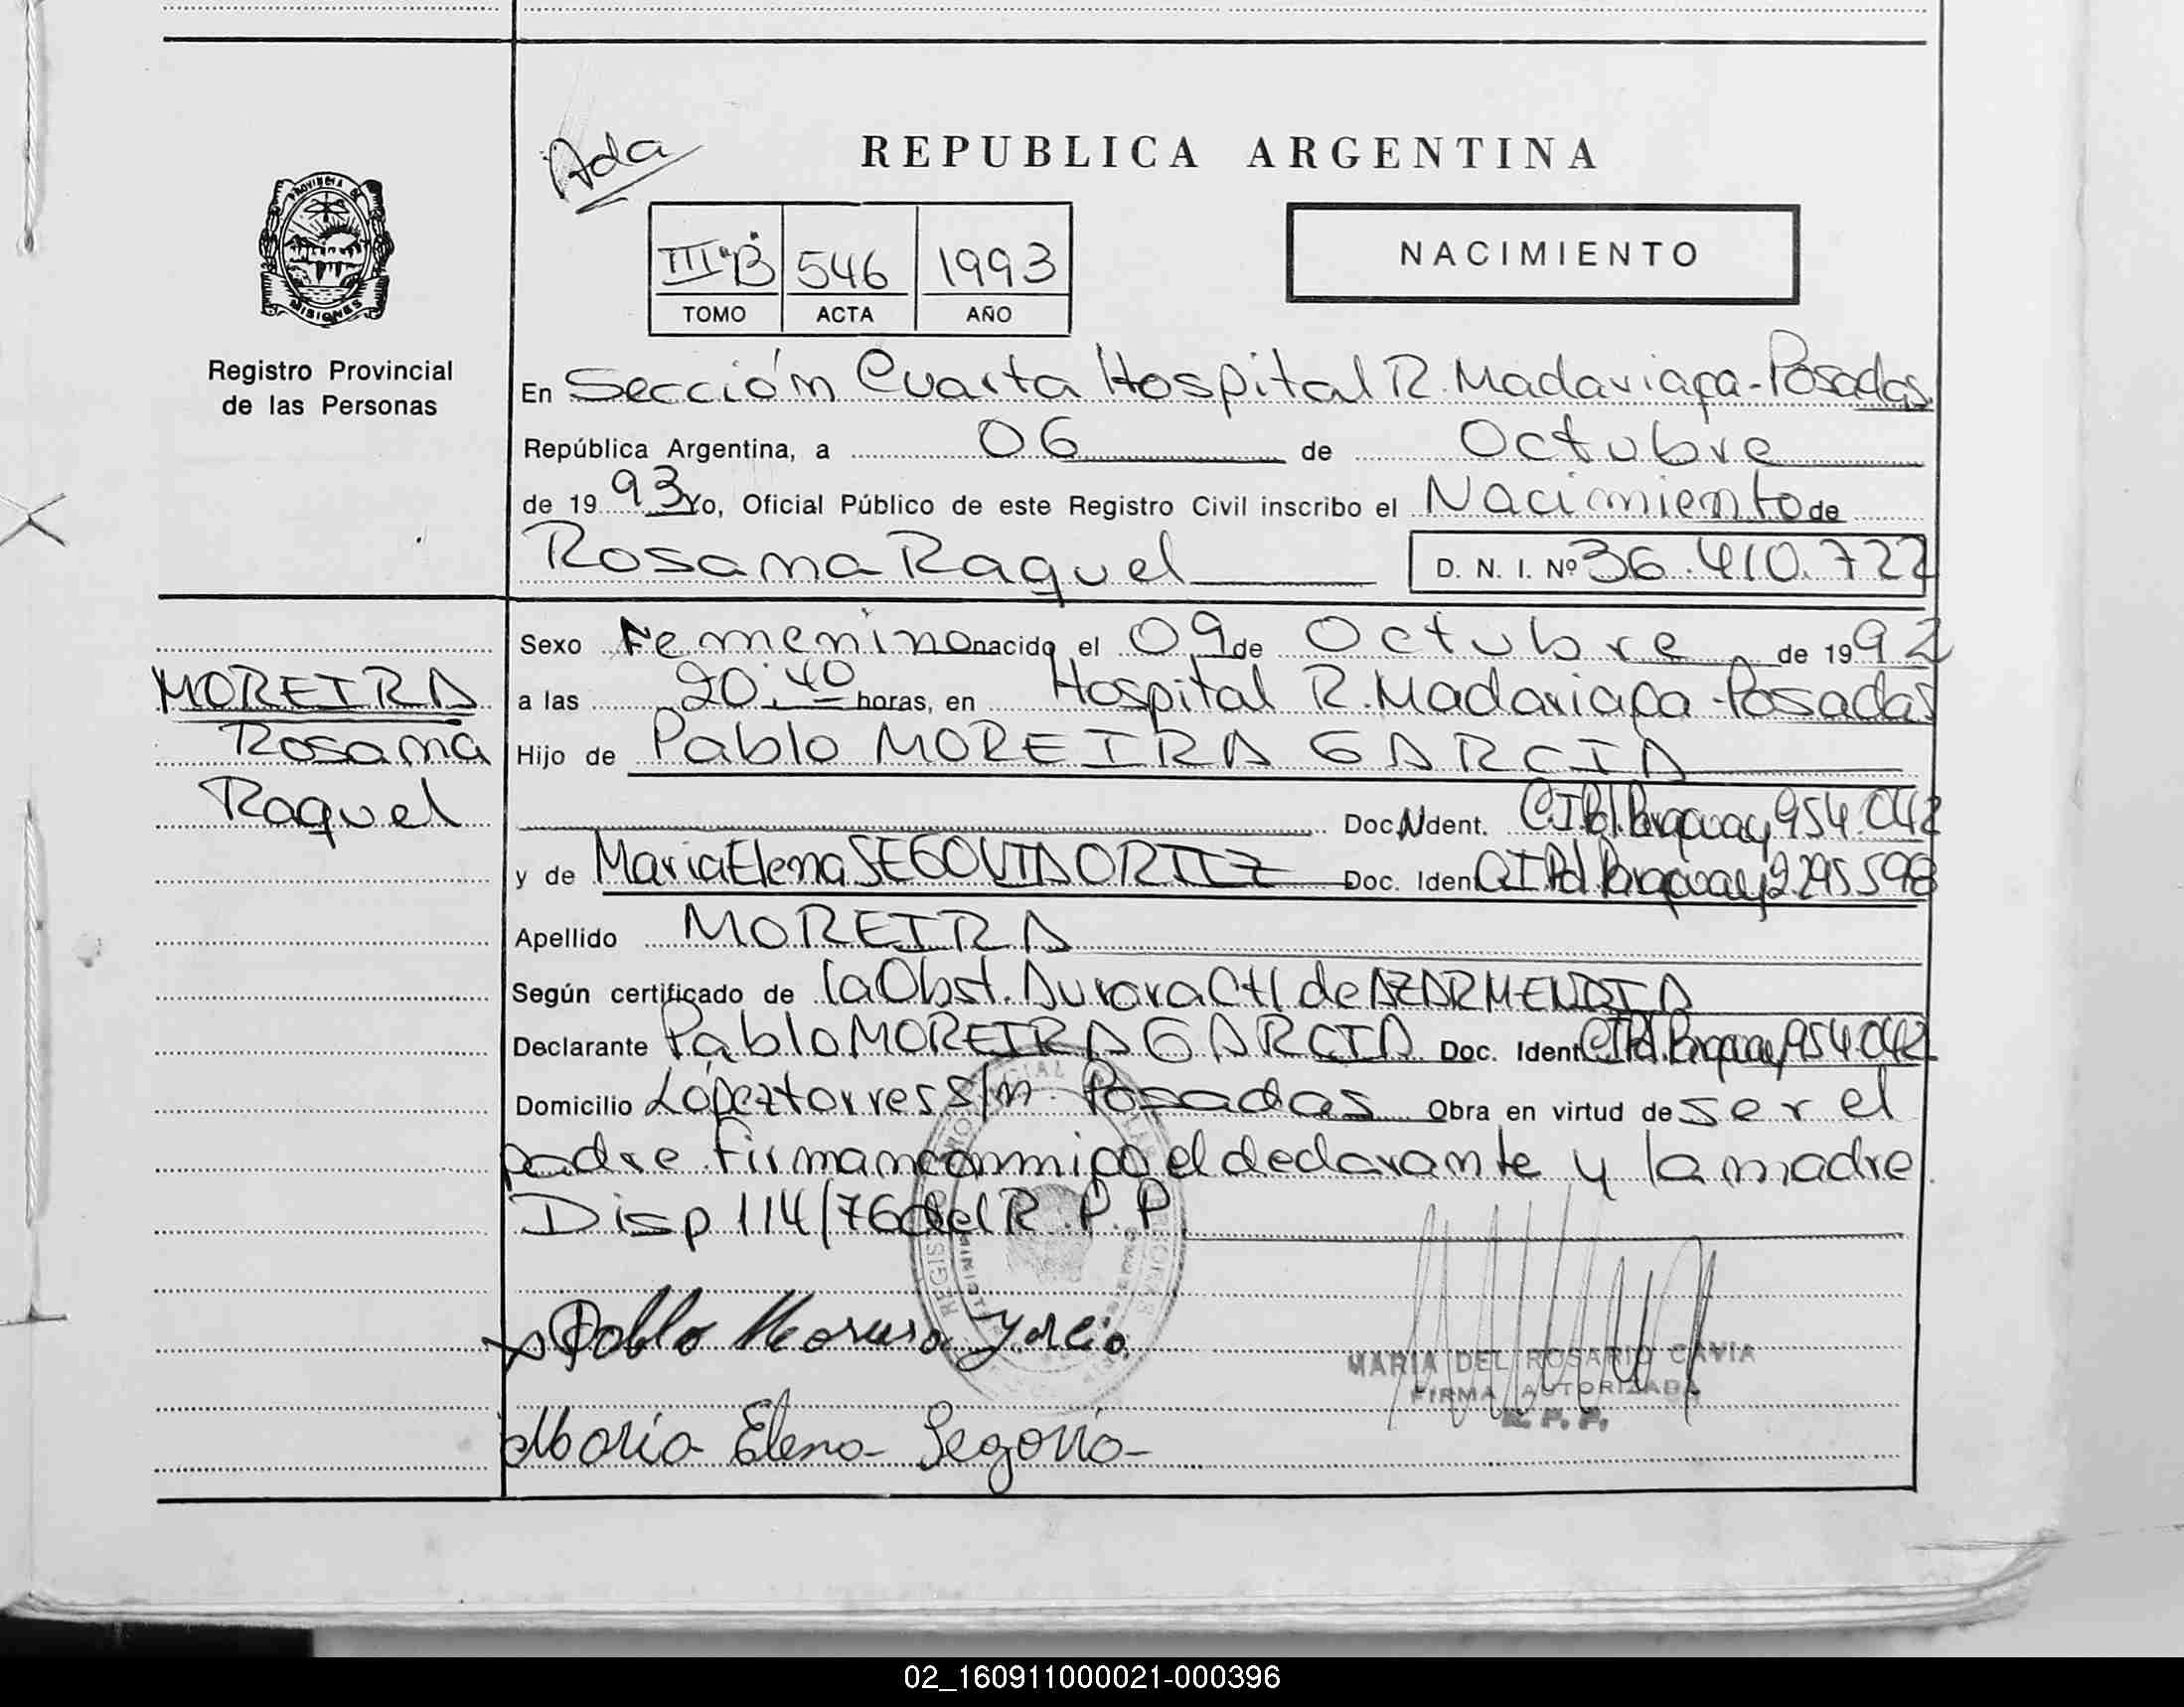 Ada
REPUBLICA ARGENTINA
PROVINCIA DE
MISIONES
III "B" 546 1993
TOMO ACTA AÑO
NACIMIENTO
Registro Provincial
de las Personas
En Sección Cuarta Hospital R. Madariaga - Posadas
República Argentina, a 06 de Octubre
de 1993 Yo, Oficial Público de este Registro Civil inscribo el Nacimiento de
Rosana Raquel D. N. I. Nº 36.410.722
Sexo Femenino nacido el 09 de Octubre de 1992
a las 20.40 horas, en Hospital R. Madariaga - Posadas
Hijo de Pablo MOREIRA GARCIA
Doc. Ident. C.I.Pol. Paraguay 954.042
y de Maria Elena SEGOVIA ORTIZ Doc. Ident. C.I.Pol Paraguay 2.295.598
Apellido MOREIRA
Según certificado de la Obst. Aurora de AZARMENDIA
Declarante Pablo MOREIRA GARCIA Doc. Ident. C.I.Pol. Paraguay 954.042
Domicilio López torres S/n Posadas Obra en virtud de ser el
padre. Firman conmigo el declarante y la madre.
Disp 114/76 del R.P.P.
MOREIRA
Rosana
Raquel
x Pablo Moreira Garcia
MARIA DEL ROSARIO CAVIA
FIRMA AUTORIZADA
R. P. P.
Maria Elena Segovia
02_160911000021-000396